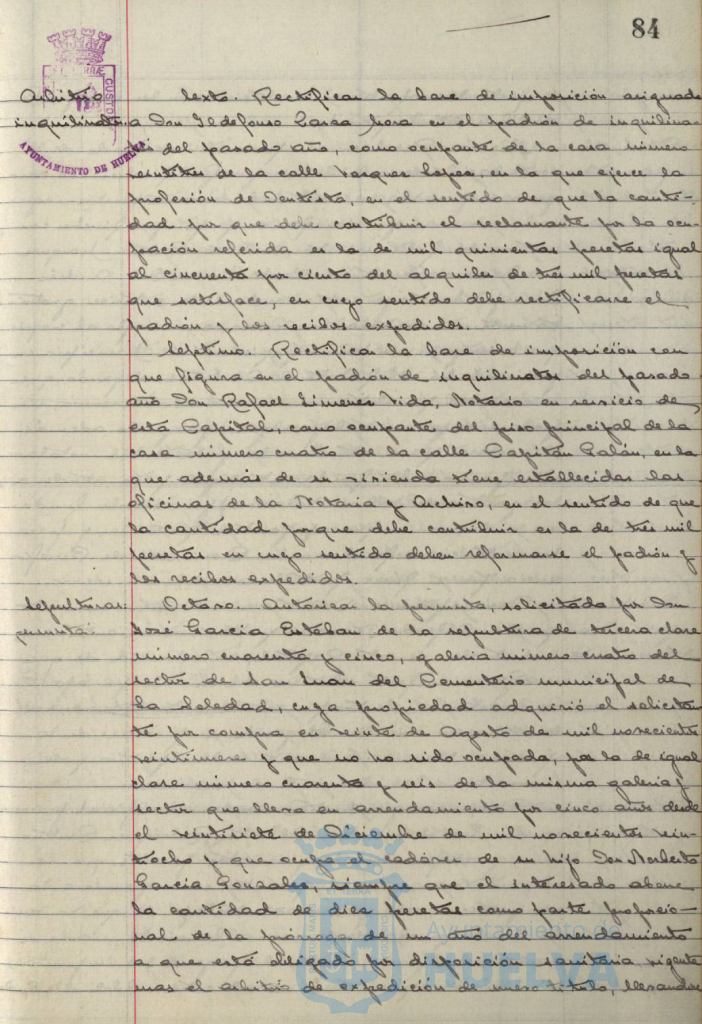 84
Arbitrio
inquilinato.
AYUNTAMIENTO DE HUELVA
CUSTO
Sexto. Rectificar la base de imposición asignada
a Don Ildefonso Hora en el padrón de inquilina-
tos del pasado año, como ocupante de la casa número
veintitres de la calle Vazquez Lopez, en la que ejerce la
profesión de Dentista, en el sentido de que la canti-
dad por que debe contribuir el reclamante por la ocu-
pación referida es la de mil quinientas pesetas igual
al cincuenta por ciento del alquiler de tres mil pesetas
que satisface, en cuyo sentido debe rectificarse el
padrón y los recibos expedidos.
Septimo. Rectificar la base de imposición con
que figura en el padrón de inquilinatos del pasado
año Don Rafael Vida, Notario en servicio de
esta Capital, como ocupante del piso principal de la
casa número cuatro de la calle Capitán Galán, en la
que además de su vivienda tiene establecidas las
oficinas de la Notaria y Archivo, en el sentido de que
la cantidad porque debe contribuir es la de tres mil
pesetas en cuyo sentido deben reformarse el padrón y
los recibos expedidos.
Sepulturas:
permuta.
Octavo. Autorizar la permuta, solicitada por Don
José García Esteban de la sepultura de tercera clase
número cuarenta y cinco, galeria número cuatro del
sector de San Juan del Cementerio municipal de
la Soledad, cuya propiedad adquirió el solicitan
te por compra en veinte de Agosto de mil novecientos
veintinueve y que no ha sido ocupada, por la de igual
clase número cuarenta y seis de la misma galeria y
sector que lleva en arrendamiento por cinco años desde
el veintisiete de Diciembre de mil novecientos vein-
tiocho y que ocupa el cadáver de su hijo Don Norberto
García Gonzalez, siempre que el interesado abone
la cantidad de diez pesetas como parte proporcio-
nal de la prórroga de un año del arrendamiento
a que está obligado por disposición sanitaria vigente
mas el arbitrio de expedición de nuevo titulo, llevandose
Ayuntamiento de
HUELVA